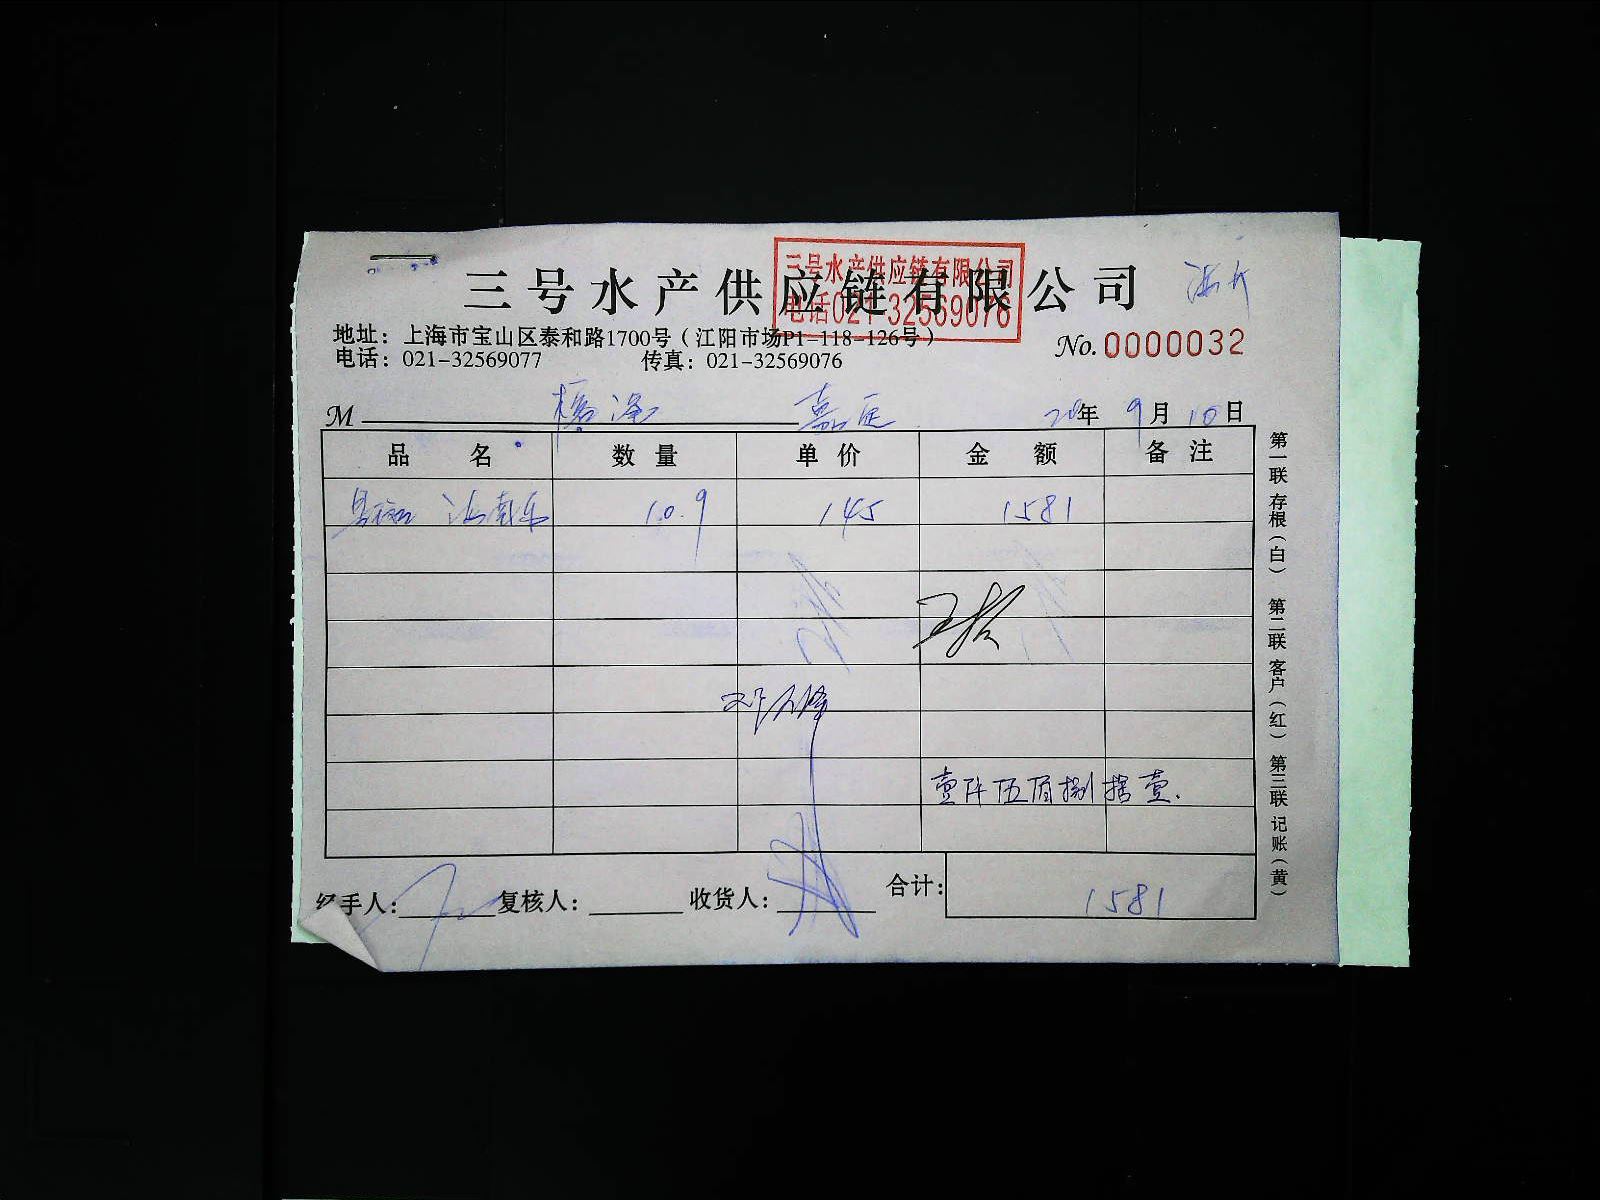 三号水产供应链有限公司
三号水产供应链有限公司
电话021-32569076
地址：上海市宝山区泰和路1700号（江阳市场P1-118-126号）
No.0000032
电话：021-32569077 传真：021-32569076
M 嘉定 20年 9月 10日
品名 数量 单价 金额 备注
10.9 145 1581
壹仟伍佰捌拾壹.
经手人： 复核人： 收货人： 合计： 1581
第一联 存根（白） 第二联 客户（红） 第三联 记账（黄）